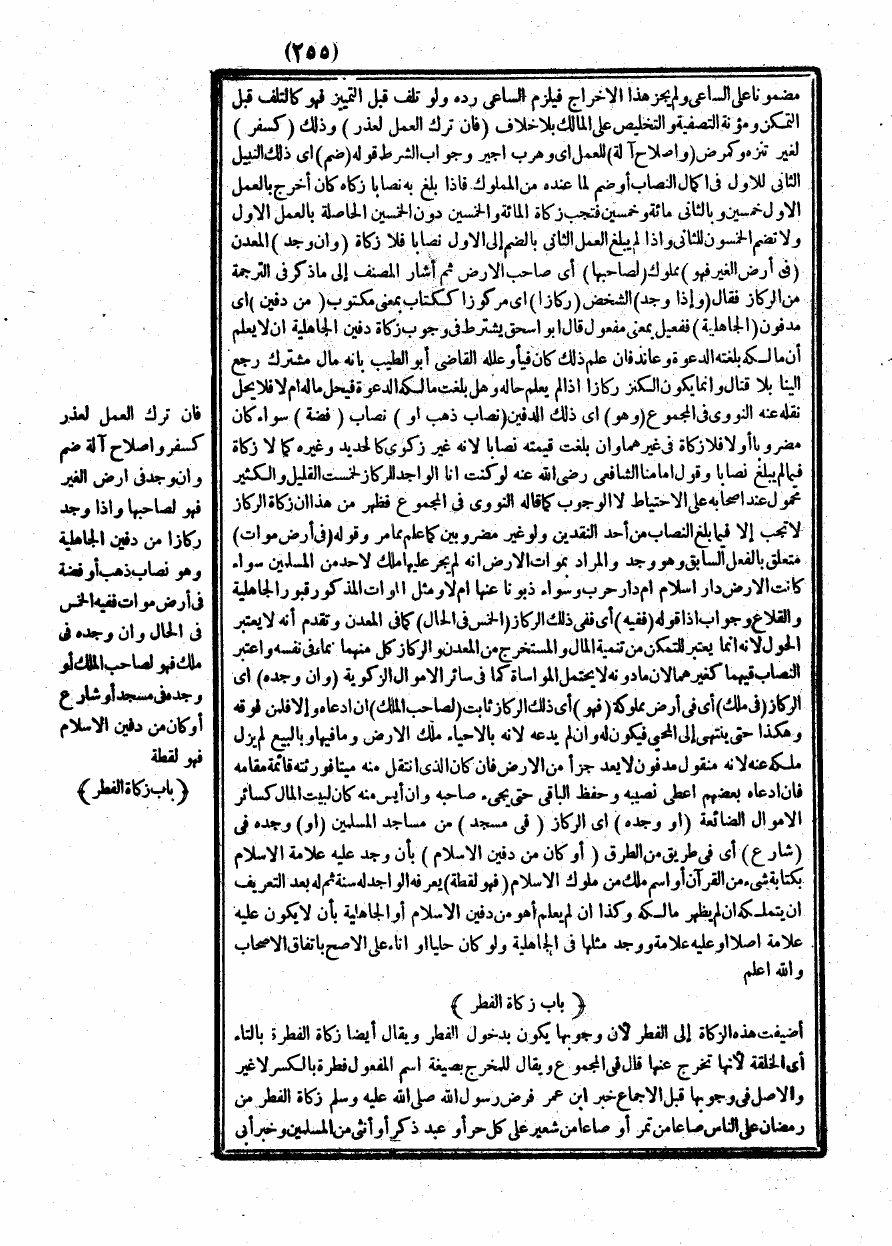 (٢٥٥)
مضمونا على الساعى ولم يجز هذا الاخراج فيلزم الساعى رده ولو تلف قبل التمييز فهو كالتلف قبل
التمكن ومؤنة التصفية والتخليص على المالك بلا خلاف (فان ترك العمل لعذر) وذلك (كسفر)
لغير تنزه وكمرض (واصلاح آلة) للعمل اى وهرب اجير وجواب الشرط قوله (ضم) اى ذلك النيل
الثانى للاول فى اكمال النصاب أو ضم لما عنده من المملوك فاذا بلغ به نصابا زكاه كان أخرج بالعمل
الاول خمسين وبالثانى مائة وخمسين فتجب زكاة المائة والخمسين دون الخمسين الحاصلة بالعمل الاول
ولا تضم الخمسون للثانى واذا لم يبلغ العمل الثانى بالضم إلى الاول نصابا فلا زكاة (وان وجد) المعدن
(فى أرض الغير فهو) مملوك (لصاحبها) أى صاحب الارض ثم أشار المصنف إلى ماذكر فى الترجمة
من الركاز فقال (وإذا وجد) الشخص (ركازا) اى مركوزا ككتاب بمعنى مكتوب (من دفين) اى
مدفون (الجاهلية) ففعيل بمعنى مفعول قال ابو اسحق يشترط فى وجوب زكاة دفين الجاهلية ان لا يعلم
أن مالكه بلغته الدعوة وعاند فان علم ذلك كان فيأ وعلله القاضى أبو الطيب بانه مال مشترك رجع
الينا بلا قتال وانما يكون الكنز ركازا اذا لم يعلم حاله وهل بلغت مالكه الدعوة فيحل ماله ام لا فلا يحل
نقله عنه النووى فى المجموع (وهو) اى ذلك الدفين (نصاب ذهب او) نصاب (فضة) سواء كان
مضروبا أو لا فلا زكاة فى غيرهما وان بلغت قيمته نصابا لانه غير زكوى كالحديد وغيره كما لا زكاة
فيما لم يبلغ نصابا وقول امامنا الشافعى رضى الله عنه لو كنت انا الواجد للركاز لخمست القليل والكثير
محمول عند اصحابه على الاحتياط لا الوجوب كما قاله النووى فى المجموع فظهر من هذا ان زكاة الركاز
لا تجب إلا فيما بلغ النصاب من أحد النقدين ولو غير مضروبين كما علم بما مر وقوله (فى أرض موات)
متعلق بالفعل السابق وهو وجد والمراد بموات الارض انه لم يجر عليها ملك لاحد من المسلمين سواء
كانت الارض دار اسلام ام دار حرب وسواء ذبونا عنها ام لا ومثل الموات المذكور قبور الجاهلية
والقلاع وجواب اذا قوله (ففيه) أى ففى ذلك الركاز (الخمس فى الحال) كما فى المعدن وتقدم أنه لا يعتبر
الحول لانه انما يعتبر للتمكن من تنمية المال والمستخرج من المعدن والركاز كل منهما نماء فى نفسه واعتبر
النصاب فيهما كغيرهما لان مادونه لا يحتمل المواساة كما فى سائر الاموال الزكوية (وان وجده) اى
الركاز (فى ملك) أى فى أرض مملوكة (فهو) أى ذلك الركاز ثابت (لصاحب الملك) ان ادعاه وإلا فلمن فوقه
وهكذا حتى ينتهى إلى المحيى فيكون له وان لم يدعه لانه بالاحياء ملك الارض ومافيها وبالبيع لم يزل
ملكه عنه لانه منقول مدفون لا يعد جزأ من الارض فان كان الذى انتقل منه ميتا فورثته قائمة مقامه
فان ادعاه بعضهم اعطى نصيبه وحفظ الباقى حتى يجىء صاحبه وان أيس منه كان لبيت المال كسائر
الاموال الضائعة (او وجده) اى الركاز (فى مسجد) من مساجد المسلمين (او) وجده فى
(شارع) أى فى طريق من الطرق (أو كان من دفين الاسلام) بأن وجد عليه علامة الاسلام
بكتابة شىء من القرآن أو اسم ملك من ملوك الاسلام (فهو لقطة) يعرفه الواجد له سنة ثم له بعد التعريف
ان يتملكه ان لم يظهر مالكه وكذا ان لم يعلم أهو من دفين الاسلام أو الجاهلية بأن لا يكون عليه
علامة اصلا او عليه علامة ووجد مثلها فى الجاهلية ولو كان حليا او اناء على الاصح باتفاق الاصحاب
والله اعلم
﴿ باب زكاة الفطر ﴾
أضيفت هذه الزكاة إلى الفطر لأن وجوبها يكون بدخول الفطر ويقال أيضا زكاة الفطرة بالتاء
أى الخلقة لأنها تخرج عنها قال فى المجموع ويقال للمخرج بصيغة اسم المفعول فطرة بالكسر لا غير
والاصل فى وجوبها قبل الاجماع خبر ابن عمر فرض رسول الله صلى الله عليه وسلم زكاة الفطر من
رمضان على الناس صاعا من تمر أو صاعا من شعير على كل حر أو عبد ذكر أو أنثى من المسلمين وخبر أبى
فان ترك العمل لعذر
كسفر واصلاح آلة ضم
وان وجد فى ارض الغير
فهو لصاحبها واذا وجد
ركازا من دفين الجاهلية
وهو نصاب ذهب أو فضة
فى أرض موات ففيه الخمس
فى الحال وان وجده فى
ملك فهو لصاحب الملك أو
وجده فى مسجد أو شارع
أو كان من دفين الاسلام
فهو لقطة
﴿ باب زكاة الفطر ﴾